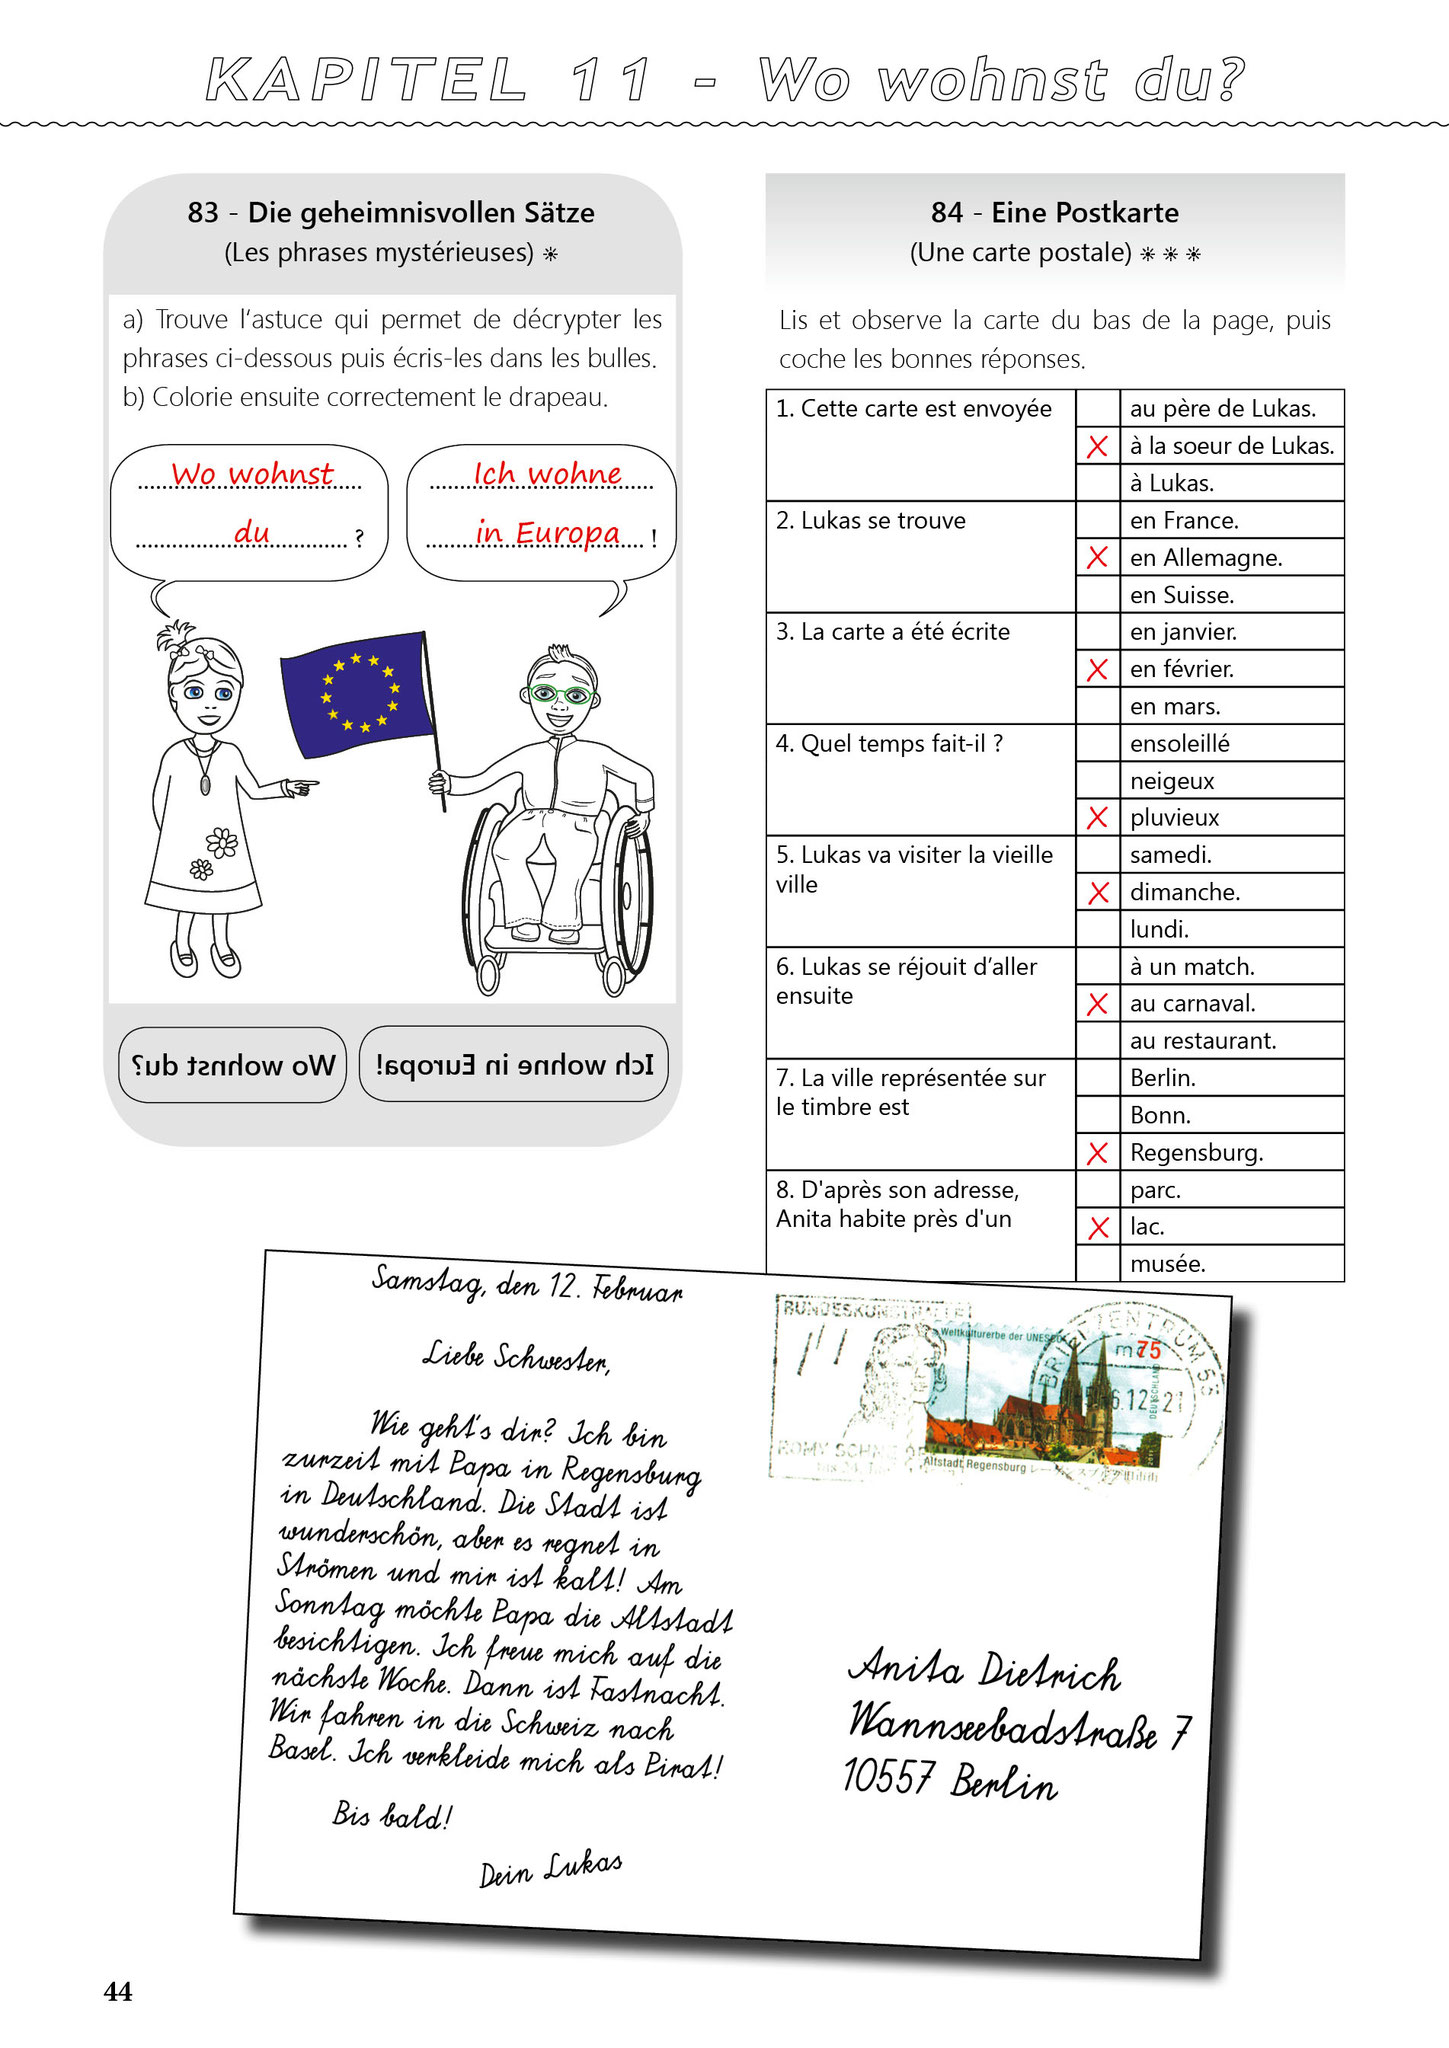 KAPITEL 11 - Wo wohnst du?
83 - Die geheimnisvollen Sätze
(Les phrases mystérieuses) ☀
a) Trouve l’astuce qui permet de décrypter les
phrases ci-dessous puis écris-les dans les bulles.
b) Colorie ensuite correctement le drapeau.
Wo wohnst
du ?
Ich wohne
in Europa !
Wo wohnst du?
Ich wohne in Europa!
84 - Eine Postkarte
(Une carte postale) ☀ ☀ ☀
Lis et observe la carte du bas de la page, puis
coche les bonnes réponses.
1. Cette carte est envoyée
au père de Lukas.
X à la soeur de Lukas.
à Lukas.
2. Lukas se trouve
en France.
X en Allemagne.
en Suisse.
3. La carte a été écrite
en janvier.
X en février.
en mars.
4. Quel temps fait-il ?
ensoleillé
neigeux
X pluvieux
5. Lukas va visiter la vieille
ville
samedi.
X dimanche.
lundi.
6. Lukas se réjouit d’aller
ensuite
à un match.
X au carnaval.
au restaurant.
7. La ville représentée sur
le timbre est
Berlin.
Bonn.
X Regensburg.
8. D'après son adresse,
Anita habite près d'un
parc.
X lac.
musée.
Samstag, den 12. Februar
Liebe Schwester,
Wie geht's dir? Ich bin
zurzeit mit Papa in Regensburg
in Deutschland. Die Stadt ist
wunderschön, aber es regnet in
Strömen und mir ist kalt! Am
Sonntag möchte Papa die Altstadt
besichtigen. Ich freue mich auf die
nächste Woche. Dann ist Fastnacht.
Wir fahren in die Schweiz nach
Basel. Ich verkleide mich als Pirat!
Bis bald!
Dein Lukas
BUNDESKUNSTHALLE
Weltkulturerbe der UNESCO
BRIEFZENTRUM 53
75
DEUTSCHLAND
ROMY SCHNEIDER
Altstadt Regensburg
Anita Dietrich
Wannseebadstraße 7
10557 Berlin
44